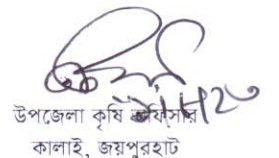 উপজেলা কৃষি অফিসার
কালাই, জয়পুরহাট